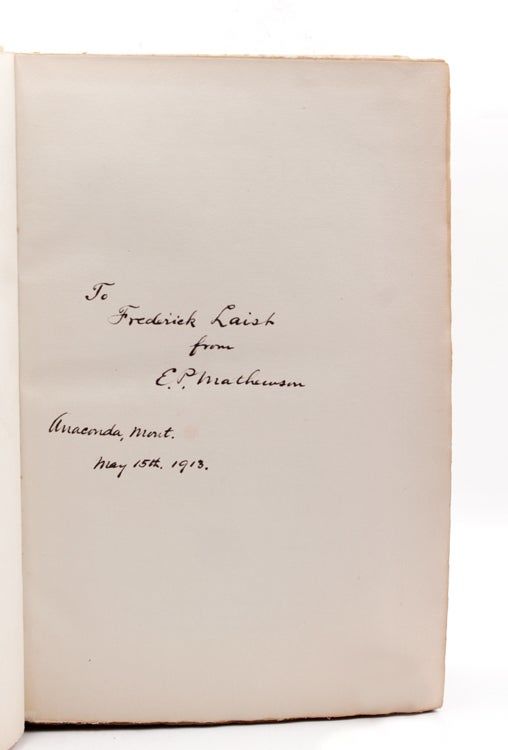 To
Frederick Laist
from
E.P. Mathewson
Anaconda, Mont.
May 15th. 1913.